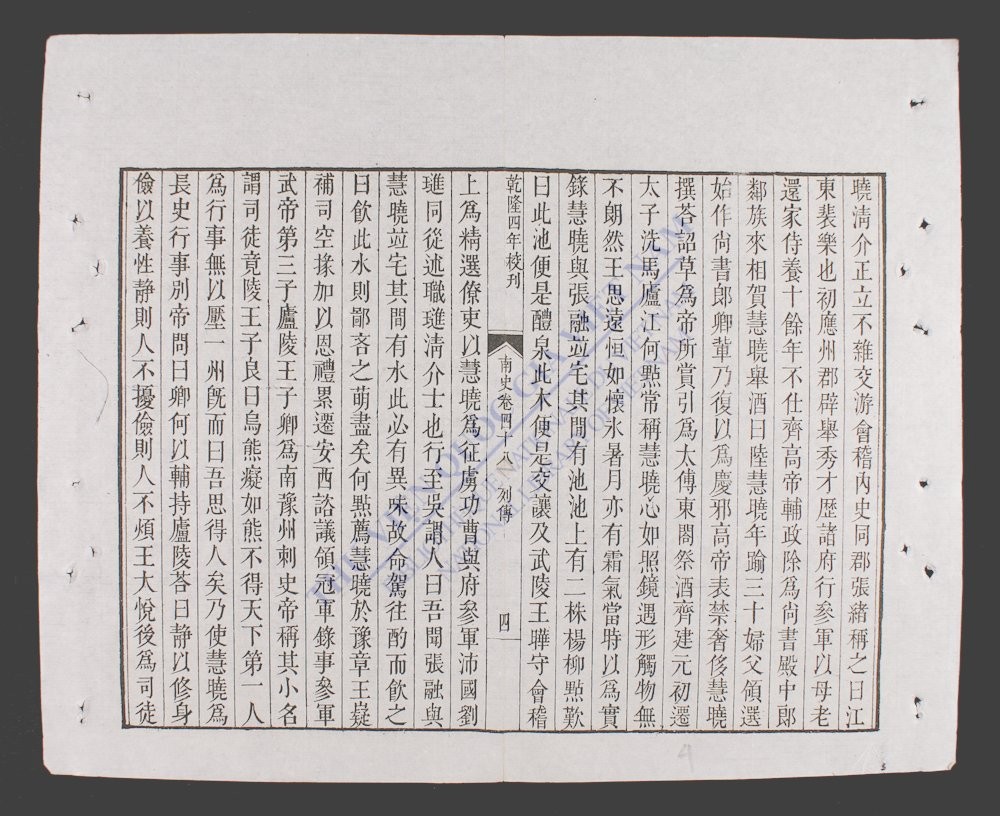 曉淸介正立不雜交游會稽內史同郡張緒稱之曰江
東裴樂也初應州郡辟舉秀才歷諸府行參軍以母老
還家侍養十餘年不仕齊高帝輔政除爲尙書殿中郞
鄰族來相賀慧曉舉酒曰陸慧曉年踰三十婦父領選
始作尙書郞卿輩乃復以爲慶邪高帝表禁奢侈慧曉
撰荅詔草爲帝所賞引爲太傅東閤祭酒齊建元初遷
太子洗馬廬江何㸃常稱慧曉心如照鏡遇形觸物無
不朗然王思遠恒如懷氷暑月亦有霜氣當時以爲實
錄慧曉與張融竝宅其閒有池池上有二株楊柳㸃歎
曰此池便是醴泉此木便是交讓及武陵王曄守會稽
乾隆四年校刊
南史卷四十八 列傳
四
上爲精選僚吏以慧曉爲征虜功曹與府參軍沛國劉
璡同從述職璡淸介士也行至吳謂人曰吾聞張融與
慧曉竝宅其間有水此必有異味故命駕往酌而飮之
曰飮此水則鄙吝之萌盡矣何㸃薦慧曉於豫章王嶷
補司空掾加以恩禮累遷安西諮議領冠軍錄事參軍
武帝第三子廬陵王子卿爲南豫州刺史帝稱其小名
謂司徒竟陵王子良曰烏熊癡如熊不得天下第一人
爲行事無以壓一州旣而曰吾思得人矣乃使慧曉爲
長史行事別帝問曰卿何以輔持廬陵荅曰靜以修身
儉以養性靜則人不擾儉則人不煩王大悅後爲司徒
THƯ VIỆN QUỐC GIA VIỆT NAM
NATIONAL LIBRARY OF VIETNAM